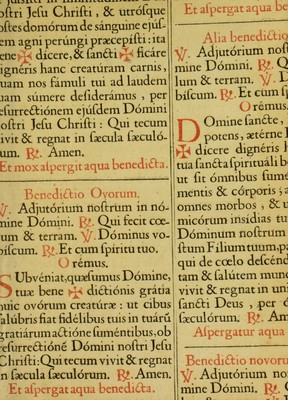 nostri Jesu Christi, & utrósque
postes domórum de sánguine ejus-
dem agni perúngi præcepísti: ita
bene ✠ dícere, & sancti ✠ ficáre
dignéris hanc creatúram carnis,
quam nos fámuli tui ad laudem
tuam súmere desiderámus, per
resurrectiónem ejúsdem Dómini
nostri Jesu Christi: Qui tecum
vivit & regnat in sæcula sæculó-
rum. ℟. Amen.
Et mox aspergit aqua benedicta.
Benedictio Ovorum.
℣. Adjutórium nostrum in nó-
mine Dómini. ℟. Qui fecit cœ-
lum & terram. ℣. Dóminus vo-
bíscum. ℟. Et cum spíritu tuo.
Orémus.
Subvéniat, quǽsumus Dómine,
tuæ bene ✠ dictiónis grátia
huic ovórum creatúræ: ut cibus
salúbris fiat fidélibus tuis in tuárū
gratiárum actióne suméntibus, ob
resurrectiónē Dómini nostri Jesu
Christi: Qui tecum vivit & regnat
in sæcula sæculórum. ℟. Amen.
Et aspergat aqua benedicta.
Et aspergat aqua be
Alia benedictio
℣. Adjutórium nost
mine Dómini. ℟.
lum & terram. ℣. D
bíscum. ℟. Et cum sp
Orémus.
Dómine sancte,
potens, ætérne
✠ dícere dignéris h
tua sancta spirituáli b
ut sit ómnibus sumé
mentis & córporis; a
omnes morbos, & u
micórum insídias tu
Dóminum nostrum
stum Fílium tuum, pa
qui de cœlo descénd
tam & salútem mund
vivit & regnat in uni
sancti Deus, per
sæculórum. ℟. Am
Aspergatur aqua
Benedictio novoru
℣. Adjutórium nost
mine Dómini. ℟.
lum & terram. ℣.